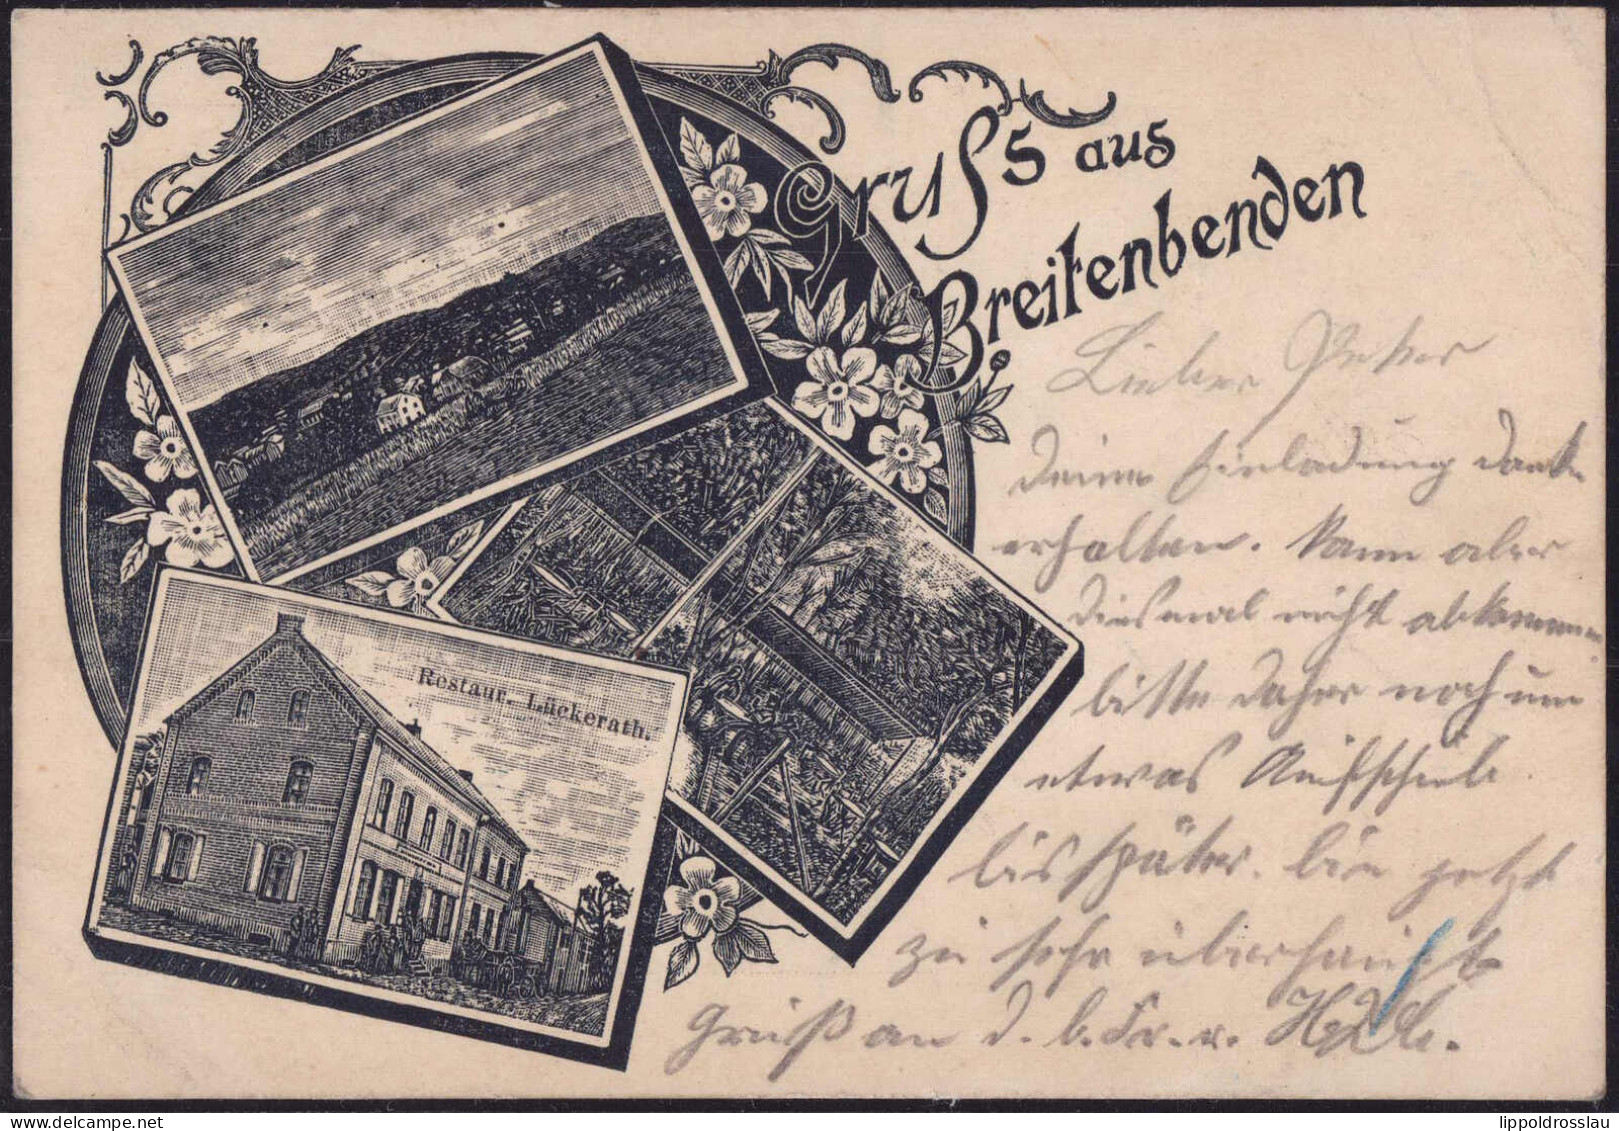 Gruss aus
Breitenbenden
Restaur. Lückerath.
Lieber Peter
Deine Einladung dank
erhalten. Kann aber
diesmal nicht abkommen
bitte daher noch um
etwas Aufschub
bis später. bin jetzt
zu sehr überhäuft
Gruß an d. b. Fr. u.
lippoldrosslau